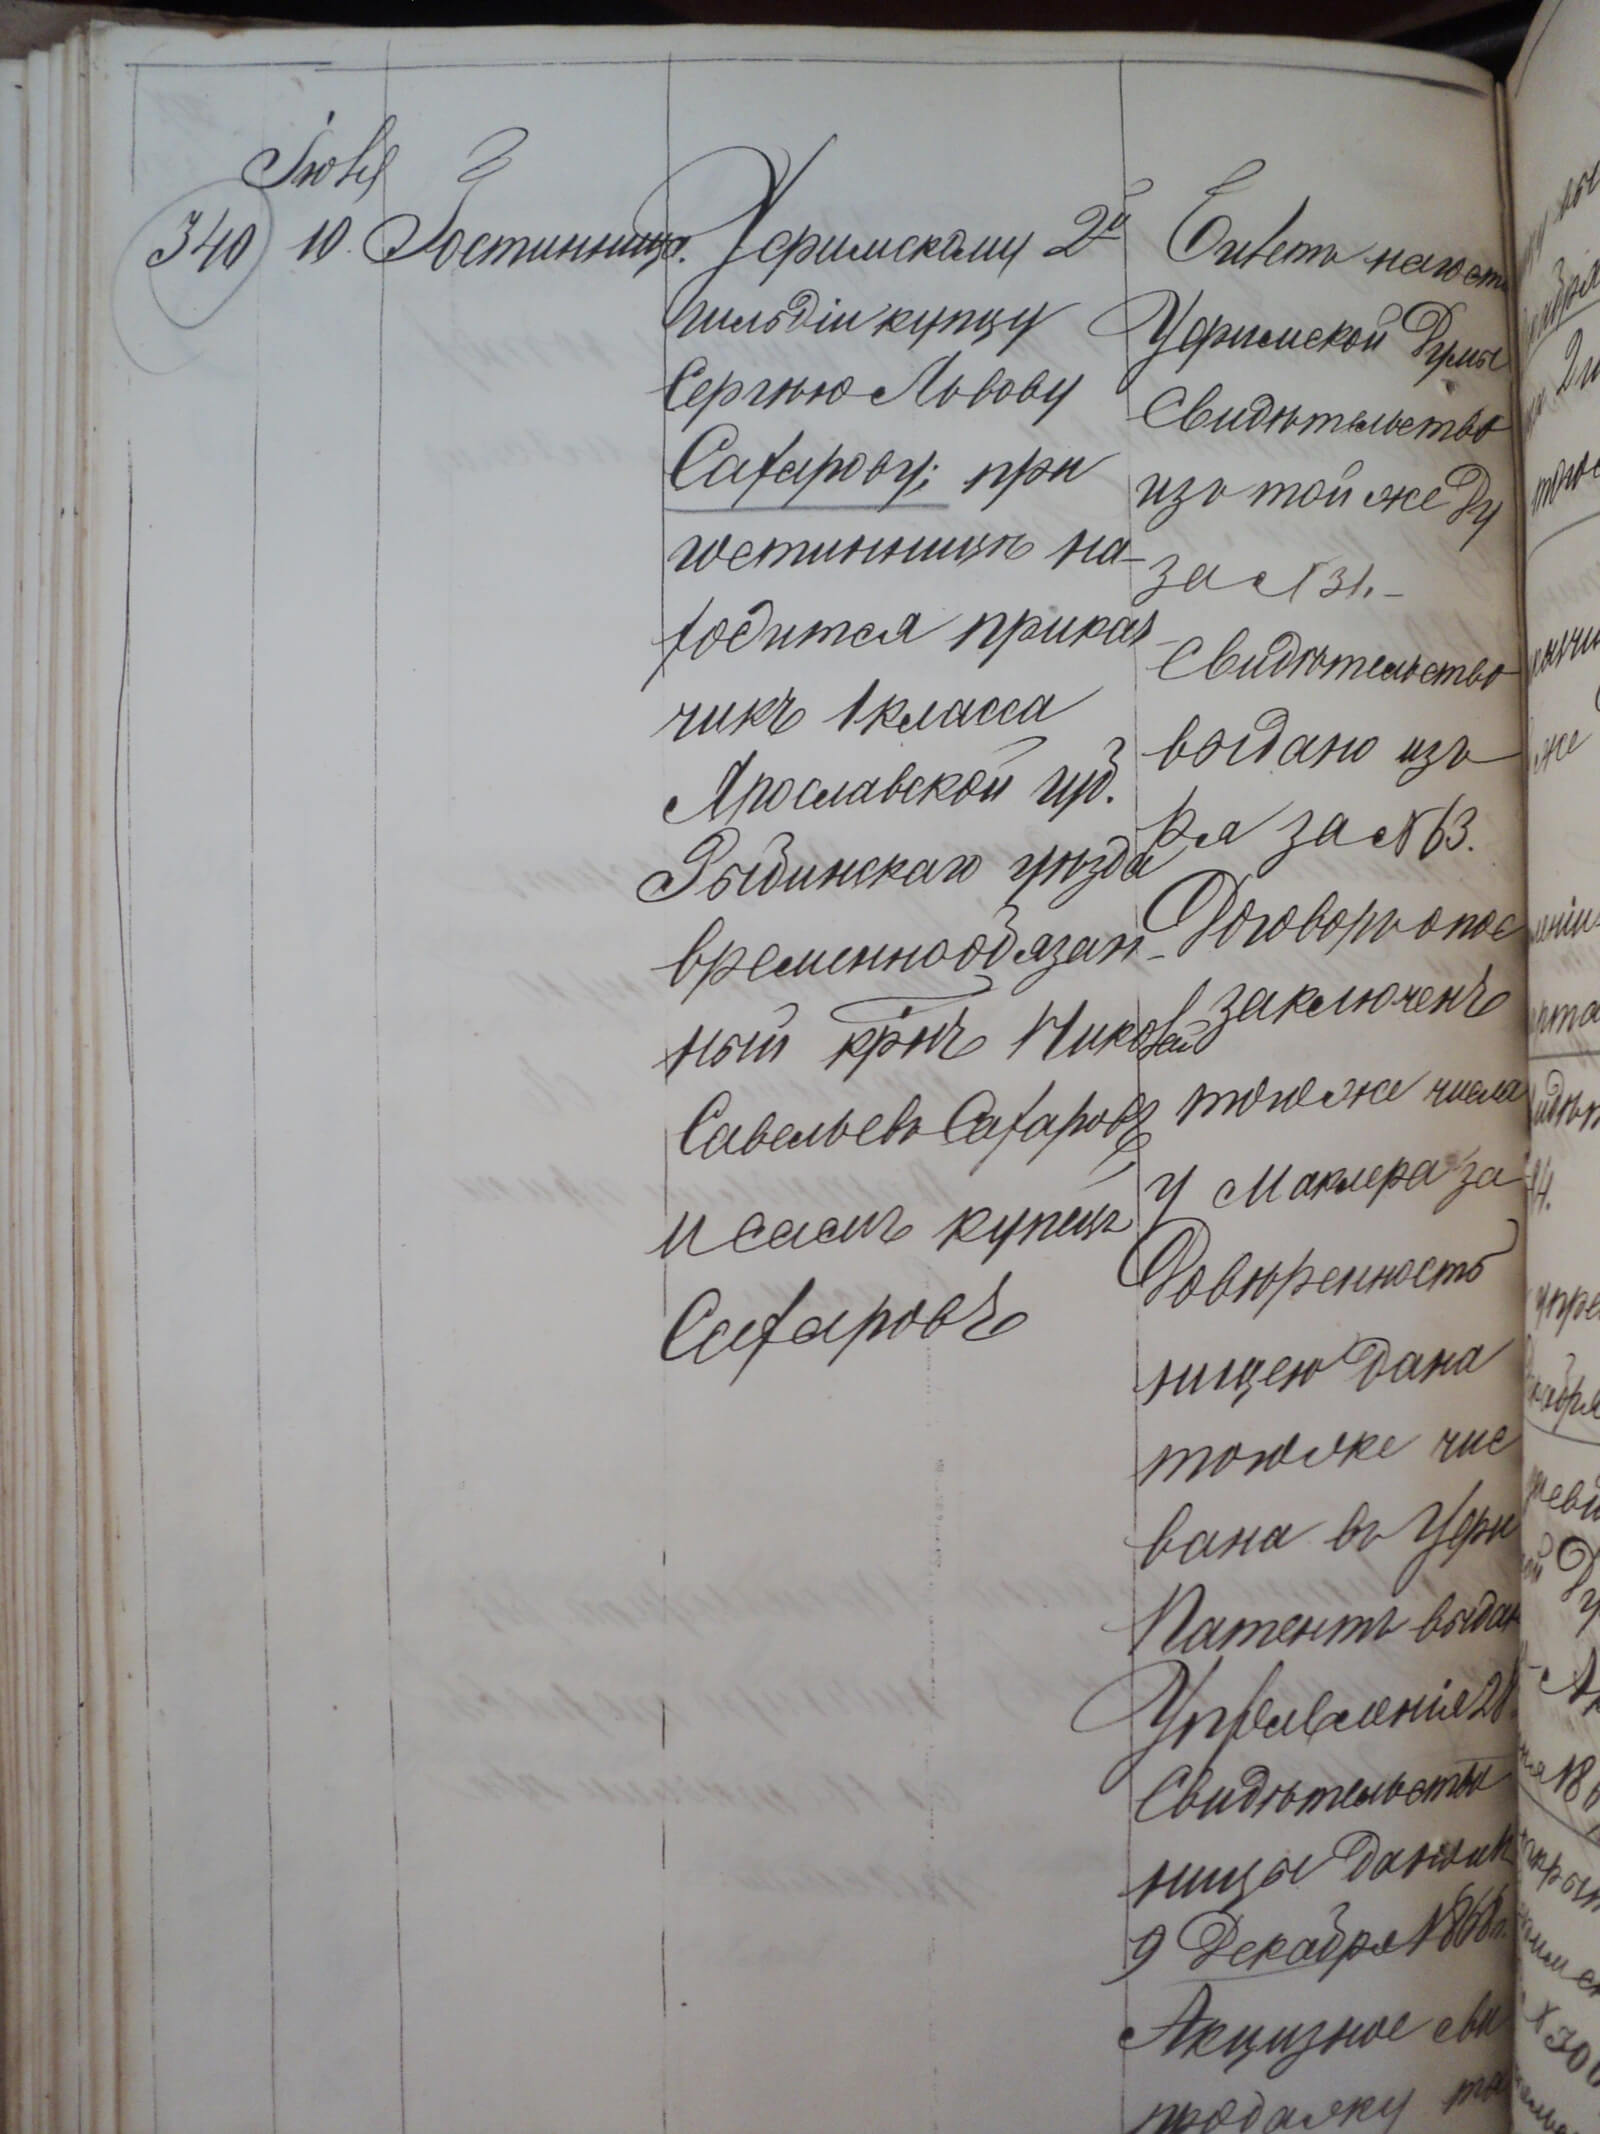 Іюня
340 10. Гостинница.
Уфимскому 2й
гильдіи купцу
Сергѣю Львову
Сахарову; при
гостинницѣ на-
ходится приказ-
чикъ 1 класса
Ярославской губ.
Рыбинскаго уѣзда
временнообязан-
ный кр-нъ Николай
Савельевъ Сахаровъ,
и самъ купецъ
Сахаровъ
Билетъ на гости
Уфимской Думы
Свидѣтельство
изъ той же Ду
за № 31.-
Свидѣтельство
выдано изъ
ря за № 63.
Договоръ о пос
заключенъ
того же числа
у Маклера за
Довѣренность
ницею дана
того же чис
вана въ Уфи
Патентъ выдан
Управленія 28
Свидѣтельство
ницы дано
9 Декабря
Акцизное сви
продажу та